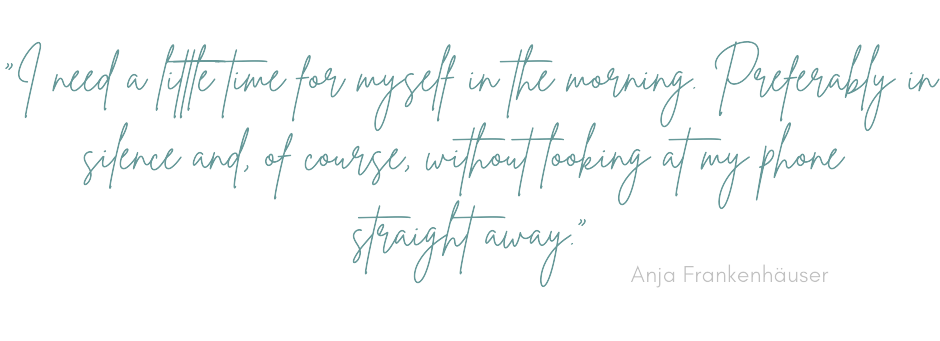 "I need a little time for myself in the morning. Preferably in
silence and, of course, without looking at my phone
straight away."
Anja Frankenhäuser